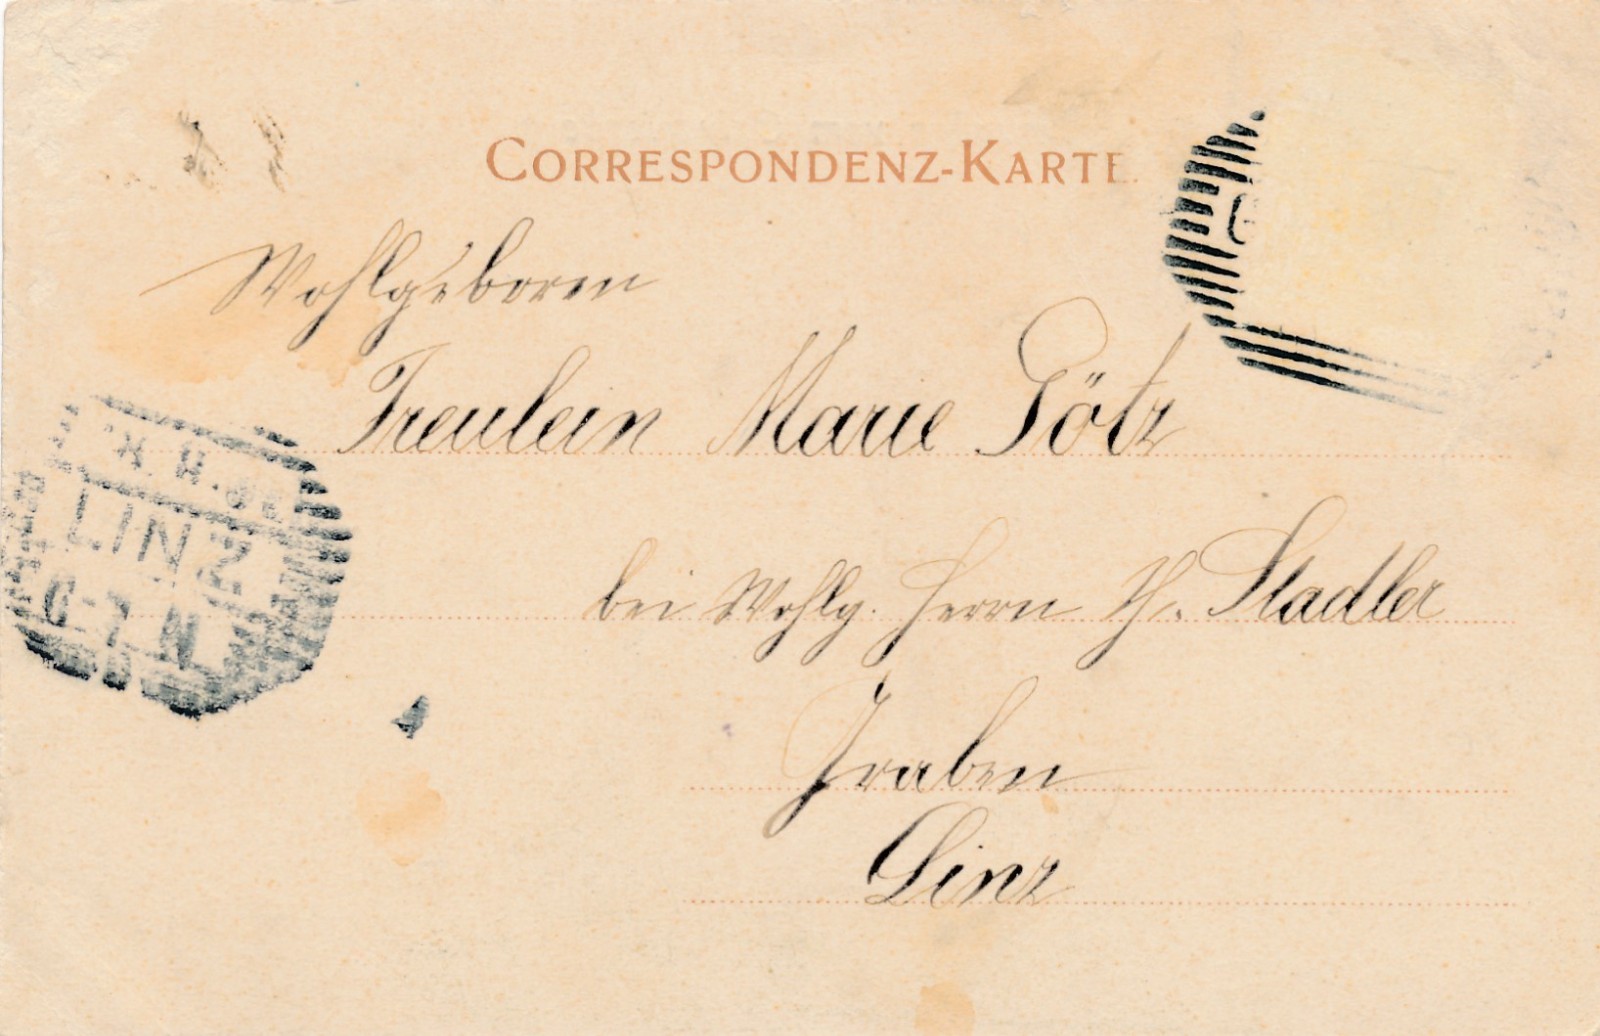 CORRESPONDENZ-KARTE.
Wohlgeboren
Freulein Marie Götz
bei Wohlg. Herrn Th. Stadler
Graben
Linz
LINZ